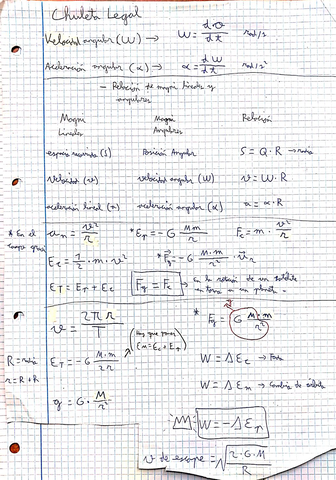 Chuleta Legal
Velocidad angular (W) → W = dθ/dt rad/s
Aceleración angular (α) → α = dW/dt rad/s²
- Relación de magn lineales y angulares
Magn Lineales Magni Angulares Relación
espacio recorrido (S) Posición Angular S = Q · R → radio
velocidad (v) velocidad angular (W) v = W · R
aceleración lineal (a) aceleración angular (α) a = α · R
* En el campo grav
an = v²/r * Ep = -G Mm/r Fc = m · v²/r
Ec = 1/2 · m · v² * Fg = -G M·m/r² · ur
ET = Ep + Ec Fg = Fc → En la rotación de un satélite en torno a un planeta.
v = 2πr/T * Fg = G M·m/r²
Hay que poner EM = Ec + Ep
R = radio
r = R + h
ET = -G M·m/2r
W = ΔEc →
W = ΔEm → Cambio de órbita
g = G · M/r²
W = -ΔEp
v de escape = √(2·G·M/R)